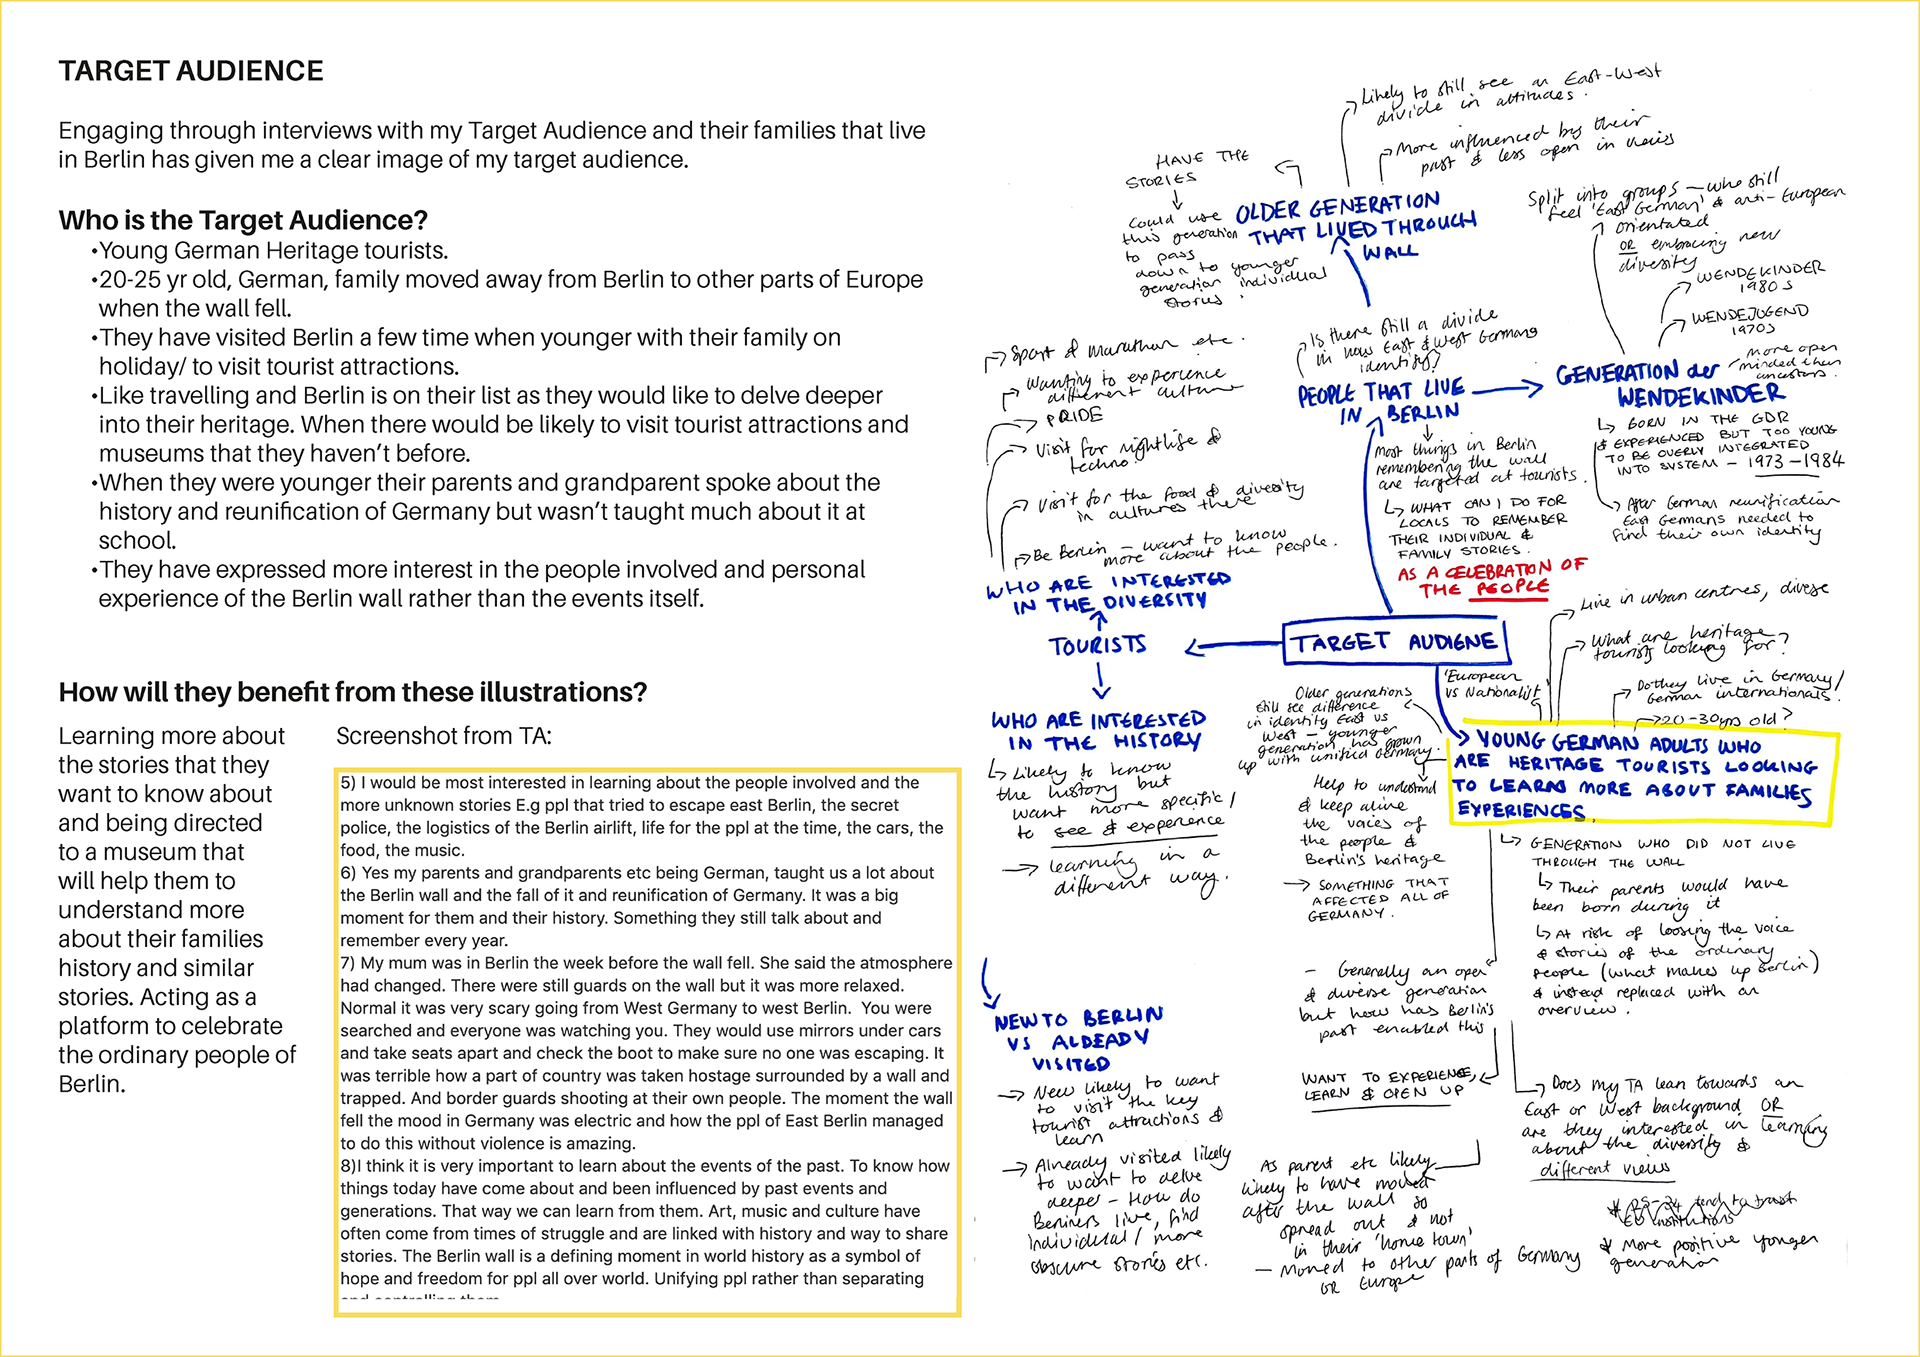 TARGET AUDIENCE
Engaging through interviews with my Target Audience and their families that live
in Berlin has given me a clear image of my target audience.
Who is the Target Audience?
•Young German Heritage tourists.
•20-25 yr old, German, family moved away from Berlin to other parts of Europe
when the wall fell.
•They have visited Berlin a few time when younger with their family on
holiday/ to visit tourist attractions.
•Like travelling and Berlin is on their list as they would like to delve deeper
into their heritage. When there would be likely to visit tourist attractions and
museums that they haven't before.
•When they were younger their parents and grandparent spoke about the
history and reunification of Germany but wasn't taught much about it at
school.
•They have expressed more interest in the people involved and personal
experience of the Berlin wall rather than the events itself.
How will they benefit from these illustrations?
Learning more about
the stories that they
want to know about
and being directed
to a museum that
will help them to
understand more
about their families
history and similar
stories. Acting as a
platform to celebrate
the ordinary people of
Berlin.
Screenshot from TA:
5) I would be most interested in learning about the people involved and the
more unknown stories E.g ppl that tried to escape east Berlin, the secret
police, the logistics of the Berlin airlift, life for the ppl at the time, the cars, the
food, the music.
6) Yes my parents and grandparents etc being German, taught us a lot about
the Berlin wall and the fall of it and reunification of Germany. It was a big
moment for them and their history. Something they still talk about and
remember every year.
7) My mum was in Berlin the week before the wall fell. She said the atmosphere
had changed. There were still guards on the wall but it was more relaxed.
Normal it was very scary going from West Germany to west Berlin. You were
searched and everyone was watching you. They would use mirrors under cars
and take seats apart and check the boot to make sure no one was escaping. It
was terrible how a part of country was taken hostage surrounded by a wall and
trapped. And border guards shooting at their own people. The moment the wall
fell the mood in Germany was electric and how the ppl of East Berlin managed
to do this without violence is amazing.
8)I think it is very important to learn about the events of the past. To know how
things today have come about and been influenced by past events and
generations. That way we can learn from them. Art, music and culture have
often come from times of struggle and are linked with history and way to share
stories. The Berlin wall is a defining moment in world history as a symbol of
hope and freedom for ppl all over world. Unifying ppl rather than separating
and controlling them
Likely to still see an East-West
divide in attitudes.
More influenced by their
past & less open in views
HAVE THE
STORIES
Could use
this generation
to pass
down to younger
generation individual
stories.
OLDER GENERATION
THAT LIVED THROUGH
WALL
Split into groups - who still
feel 'East German' & anti-European
orientated
OR embracing new
diversity
WENDEKINDER
1980s
WENDEJUGEND
1970s
more open
minded than
ancestors.
GENERATION der
WENDEKINDER
BORN IN THE GDR
& EXPERIENCED BUT TOO YOUNG
TO BE OVERLY INTEGRATED
INTO SYSTEM - 1973-1984
After German reunification
East Germans needed to
find their own identity
Is there still a divide
in how East & West Germans
identify?
PEOPLE THAT LIVE
IN BERLIN
Most things in Berlin
remembering the wall
are targeted at tourists.
WHAT CAN I DO FOR
LOCALS TO REMEMBER
THEIR INDIVIDUAL &
FAMILY STORIES.
AS A CELEBRATION OF
THE PEOPLE
Sport & marathon etc.
Wanting to experience
different culture
PRIDE
Visit for nightlife &
techno.
Visit for the food & diversity
in cultures there
Be Berlin - want to know
more about the people.
WHO ARE INTERESTED
IN THE DIVERSITY
TOURISTS
TARGET AUDIENE
WHO ARE INTERESTED
IN THE HISTORY
Likely to know
the history but
want more specific/
to see & experience
learning in a
different way.
NEW TO BERLIN
VS ALDEADY
VISITED
New likely to want
to visit the key
tourist attractions &
learn
Already visited likely
to want to delve
deeper - How do
Berliners live, find
individual/more
obscure stories etc.
Live in urban centres, divese
What are heritage
tourists looking for?
Do they live in Germany/
German internationals.
20-30yrs old?
'European
vs Nationalist'
YOUNG GERMAN ADULTS WHO
ARE HERITAGE TOURISTS LOOKING
TO LEARN MORE ABOUT FAMILIES
EXPERIENCES.
Older generations
still see difference
in identity East vs
West - younger
generation has grown
up with unified Germany.
Help to understand
& keep alive
the voices of
the people &
Berlin's heritage
SOMETHING THAT
AFFECTED ALL OF
GERMANY.
GENERATION WHO DID NOT LIVE
THROUGH THE WALL
Their parents would have
been born during it
At risk of loosing the voice
& stories of the ordinary
people (what makes up Berlin)
& instead replaced with an
overview.
- Generally an open
& diverse generation
but how has Berlin's
past enabled this
WANT TO EXPERIENCE,
LEARN & OPEN UP
Does my TA lean towards an
East or West background OR
are they interested in learning
about the diversity &
different views
As parent etc likely
likely to have moved
after the wall so
spread out & not
in their 'home town'
- Moved to other parts of Germany
OR Europe
tend to trust
EU institutions
* More positive younger
generation